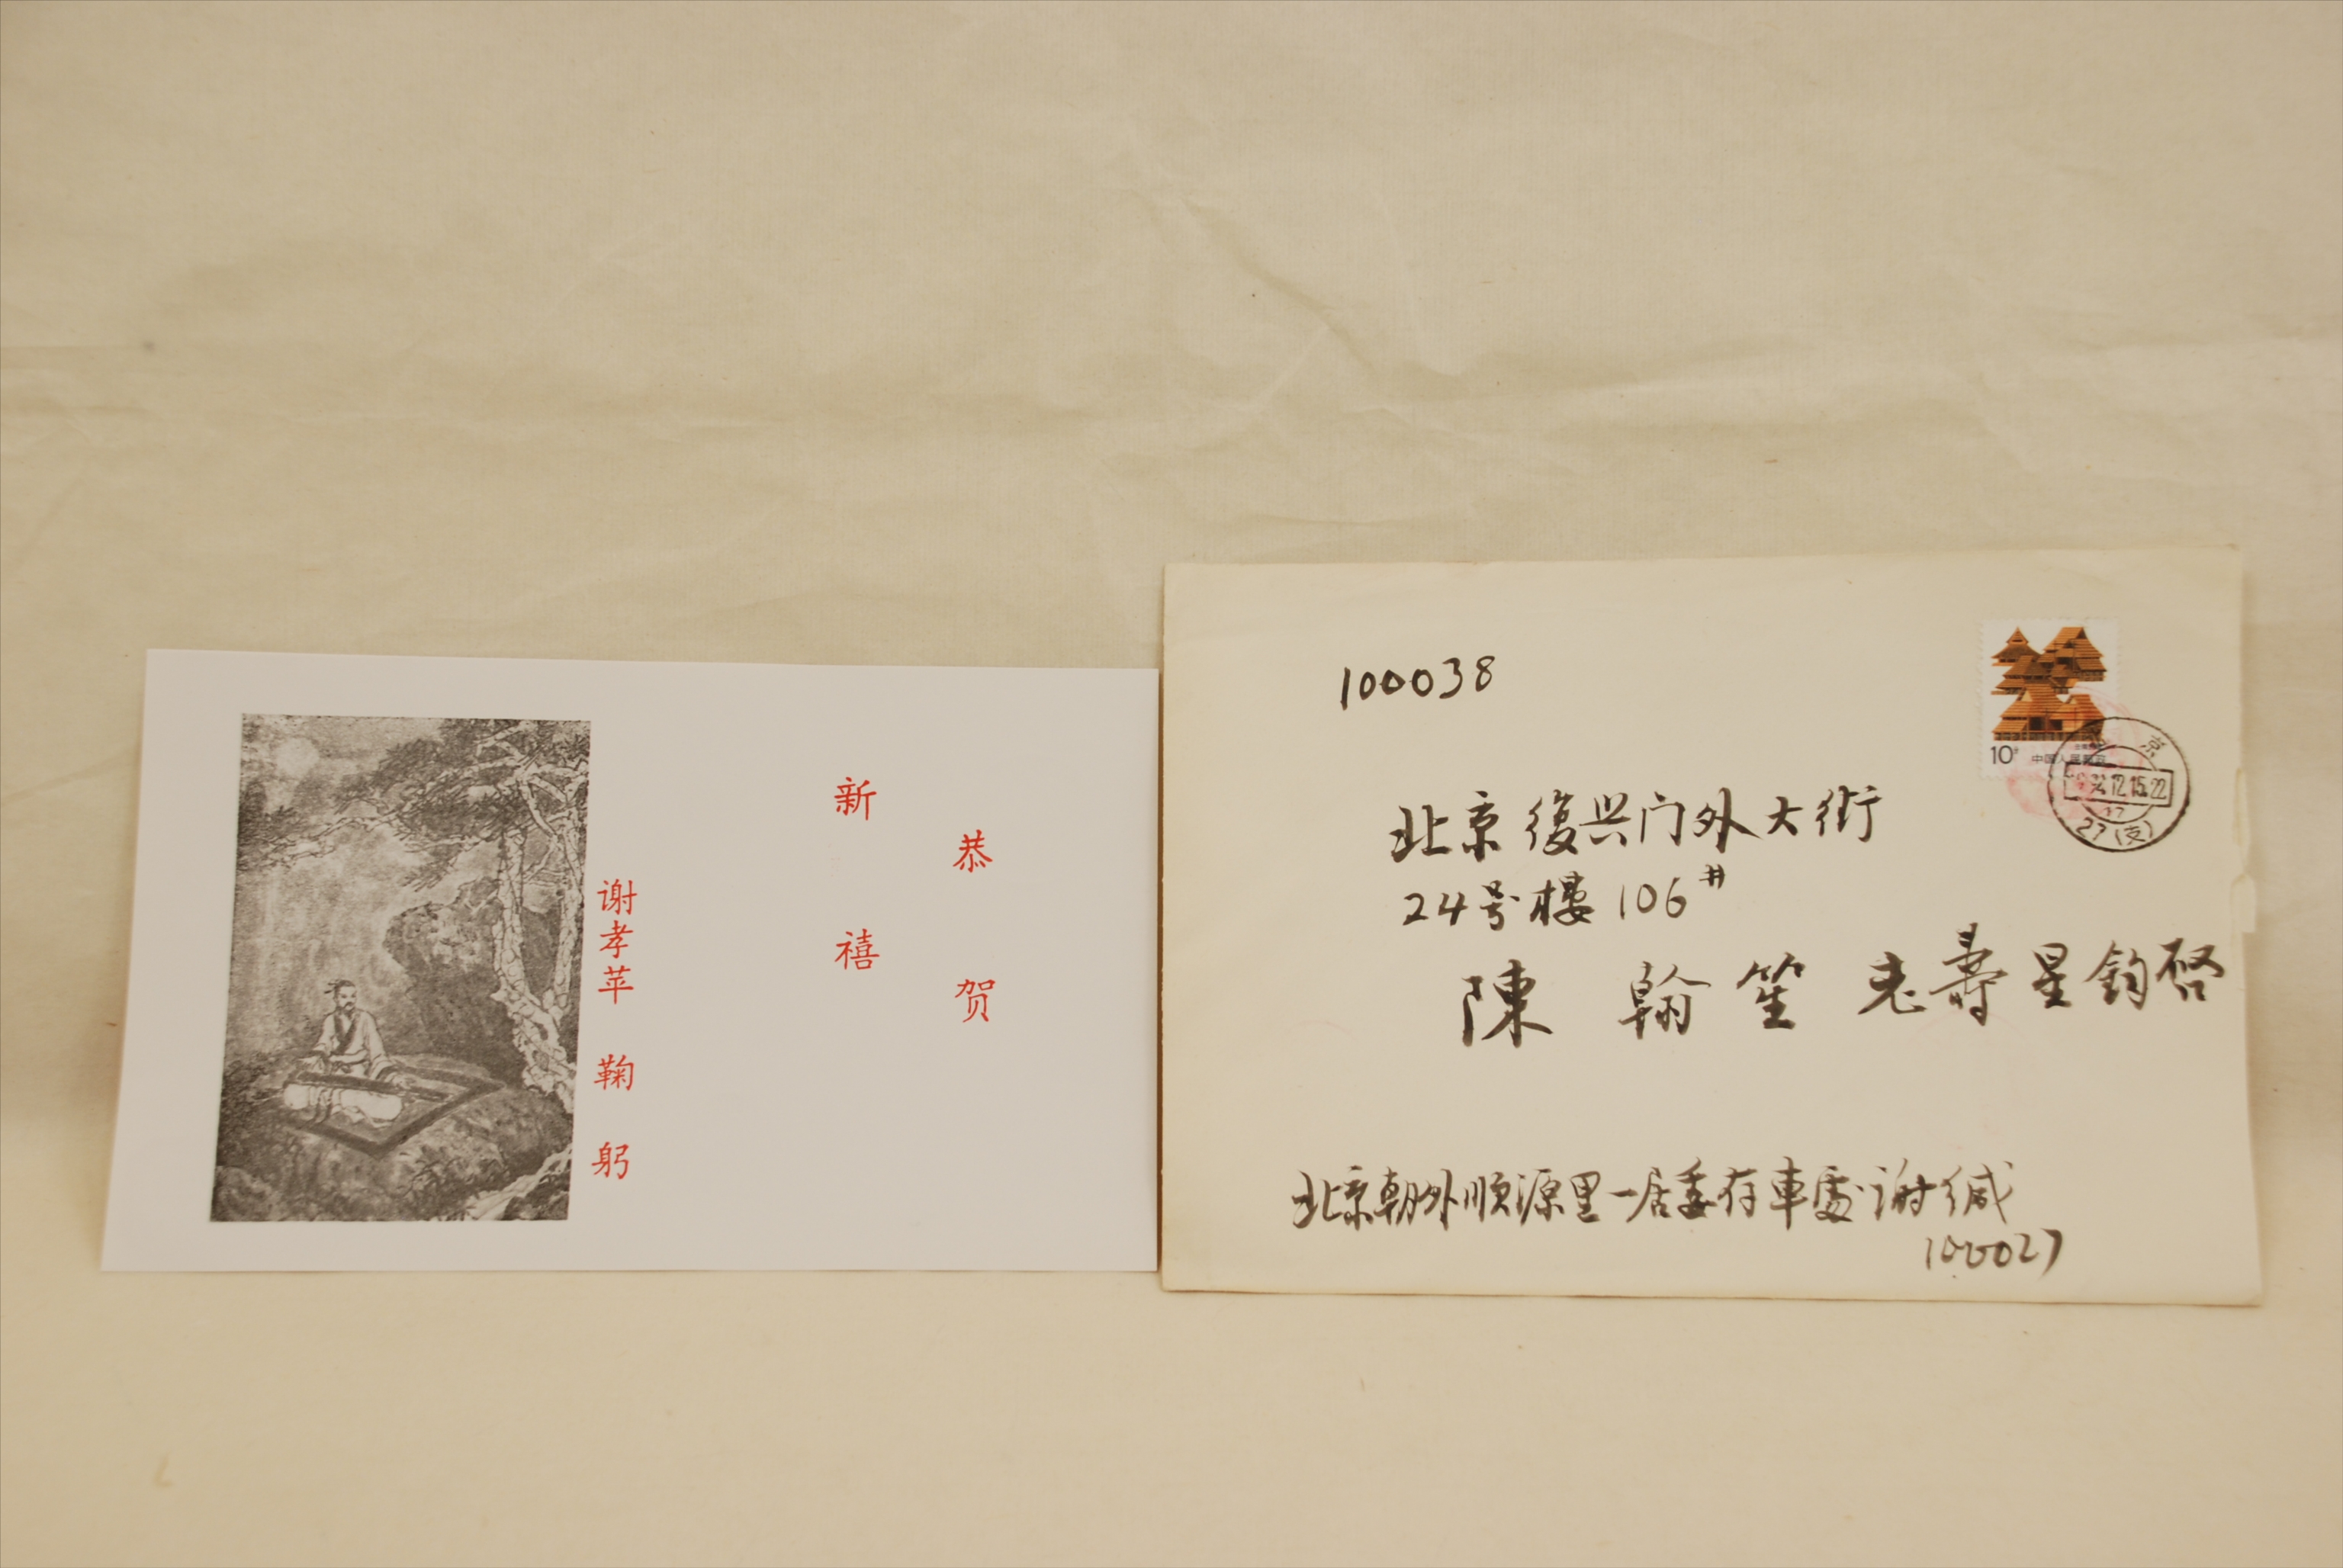 恭贺
新禧
谢孝苹 鞠躬
100038
10分
中国人民邮政
北京復兴门外大街
24号樓106#
陳翰笙 老壽星鈞啓
北京朝外順源里一居委存車處谢缄
100027
京
12.15.22
27(支)